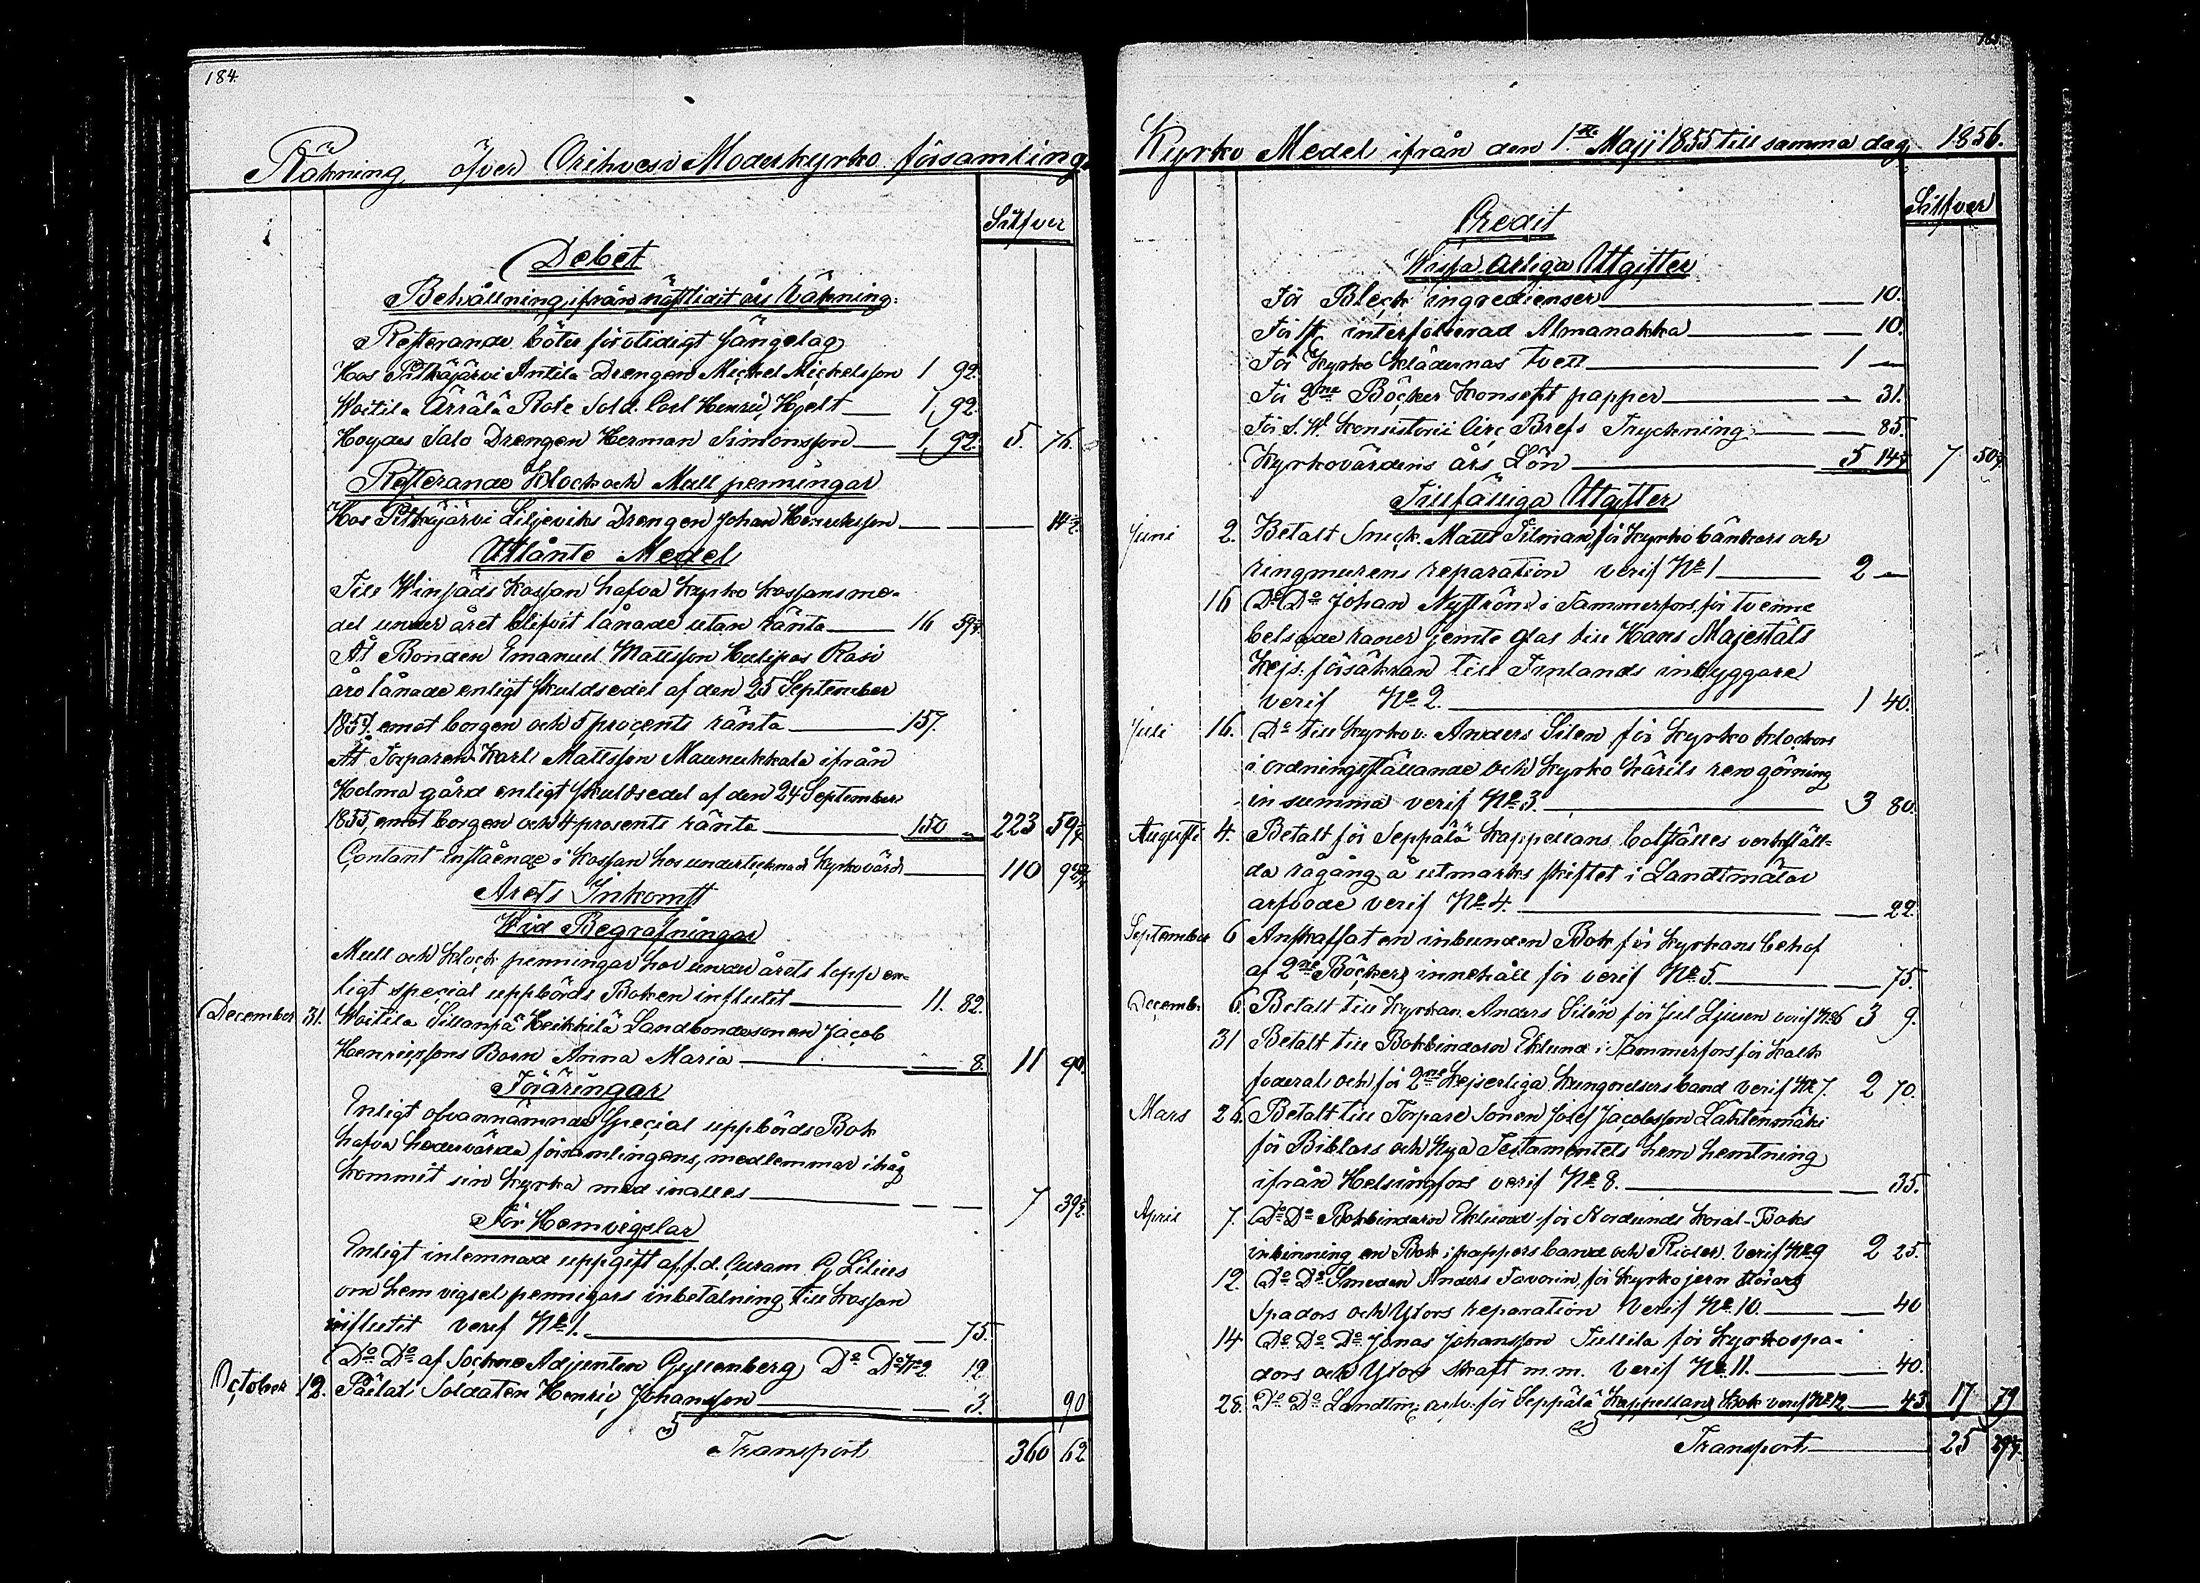 184.
Räkning öfver Orihvesi Moderkyrko församling
Silfver
Debet
Behållning ifrån nästlidit års Räkning:
Resterande böter för otidigt Sängelag
Hos Pitkäjärvi Antila Drengen Michel Michelsson 1 92.
Woitila Ärrälä Rote Sold. Carl Henric Hjelt 1, 92.
Hoydes Salo Drengen Herman Simonsson 1, 92. 5. 76.
Resterande Klock och Mull penningar
Hos Pitkäjärvi Liljeviks Drengen Johan Henricksson 14 2/7.
Utlånte Medel
Till Winsäds Kassan hafva Kyrko Kassans me-
del under året blifvit lånade utan ränta 16 59
Åt Bonden Emanuel Mattsson Rasi
äro lånade enligt skuldsedel af den 25 September
185 emot borgen och 5 procents ränta 157.
Åt Torparen Karl Mattsson Maunukkala ifrån
Holma gård enligt skuldsedel af den 24 September
1855, emot borgen och 4 prosents ränta 150 „ 223 59
Contant innstående i Kassan hos undertecknad Kyrkovärd 110 9
Arets Inkomst
Wid Begrafningar
Mull och Klock penningar har under årets lopp en-
ligt special uppbörds Boken influtit 11. 82.
December 31. Woitila Sillanpä Heikkilä Landbondesonen Jacob
Henricssons Barn Anna Maria 8. 11 90.
Föräringar
Enligt ofvannämnda Special uppbörds Bok
hafva hedervärda församlingens medlemmar ihåg
kommit sin Kyrka med inalles 7 39
För Hemvigslar
Enligt inlemnad uppgift af f.d. Curam G Lilius
om hem vigsel pennigars inbetalning till Kassan
influtit verif No 1. 75.
Do Do af Sockne Adjuncten Gyllenberg Do Do No 2 12
October 12. Päilat Soldaten Henric Johansson 3. 90
Transport 360 62
Kyrko Medel ifrån den 1ste Maji 1855 till samma dag 1856.
Silfver
Credit
Wissa Årliga Utgifter
För Bläck ingredienser 10.
För 1st interfolierad Almanakka 10.
För Kyrko Klädernas tvett 1 —
För 2ne Böcker Konsept papper 31.
För S. W. Konsistorii Circ Brefs Tryckning 85.
Kyrkovärdens års Lön 5 14 2/7 7 50 2/7
Tillfälliga Utgifter
Juni 2. Betalt Snick. Matts Tilman för Kyrko bänkars och
ringmurens reparation verif No 1 2 —
16 Do Do Johan Nyström i Tammerfors för tvenne
ramer jemte glas till Hans Majestäts
Kejs. försäkran till Finlands inbyggare
verif No 2. 1 40.
Juli 16. Do till Kyrkov. Anders Silen för Kyrko klockors
i ordningställande och Kyrko Kärils rengörning
in summa verif No 3. 3 80.
Augusti 4. Betalt för Seppälä Kappellans bolställes verkställ-
da rågång å utmarks skiftet i Landtmätar
arfvode verif No 4. 22.
September 6 Anskaffat en inbunden Bok för Kyrkans behof
af 2ne Böckers innehåll för verif No 5. 75.
Decemb. 6. Betalt till Kyrkov. Anders Silén för Jul Ljusen verif No 6 3 9.
31 Betalt till Bokbindaren Eklund i Tammerfors för Kalk
foderal och för 2ne Kejserliga Kungörelsers band verif No 7. 2 70.
Mars 26. Betalt till Torpare Sonen Josef Jacobsson Lahtenmäki
för Biblars och Nya Testamentets hem hemtning
ifrån Helsingfors verif No 8. 35.
April 7. Do Do Bokbindaren Eklund för Nordlunds Koral-Boks
inbinning en Bok i pappers band och Rider verif No 9 2 25.
12. Do Do Smeden Anders Favorin för Kyrko jern störars
spadars och Yxors reparation Verif No 10. 40
14 Do Do Do Jonas Johansson Tullila för Kyrkospa-
dors och Yxors skaft m.m. verif No 11. 40.
28. Do Do Landtm. arfv. för Seppälä Kappellans Bok verif No 12 43 17 79
Transport 25 29 2/7.